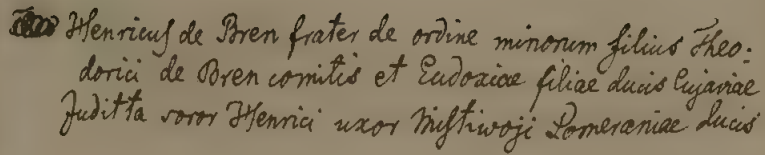 Henricus de Bren frater de ordine minorum filius Theo-
dorici de Bren comitis et Eudoxiae filiae ducis Cujaviae
Juditta soror Henrici uxor Mistiwoji Pomeraniae ducis